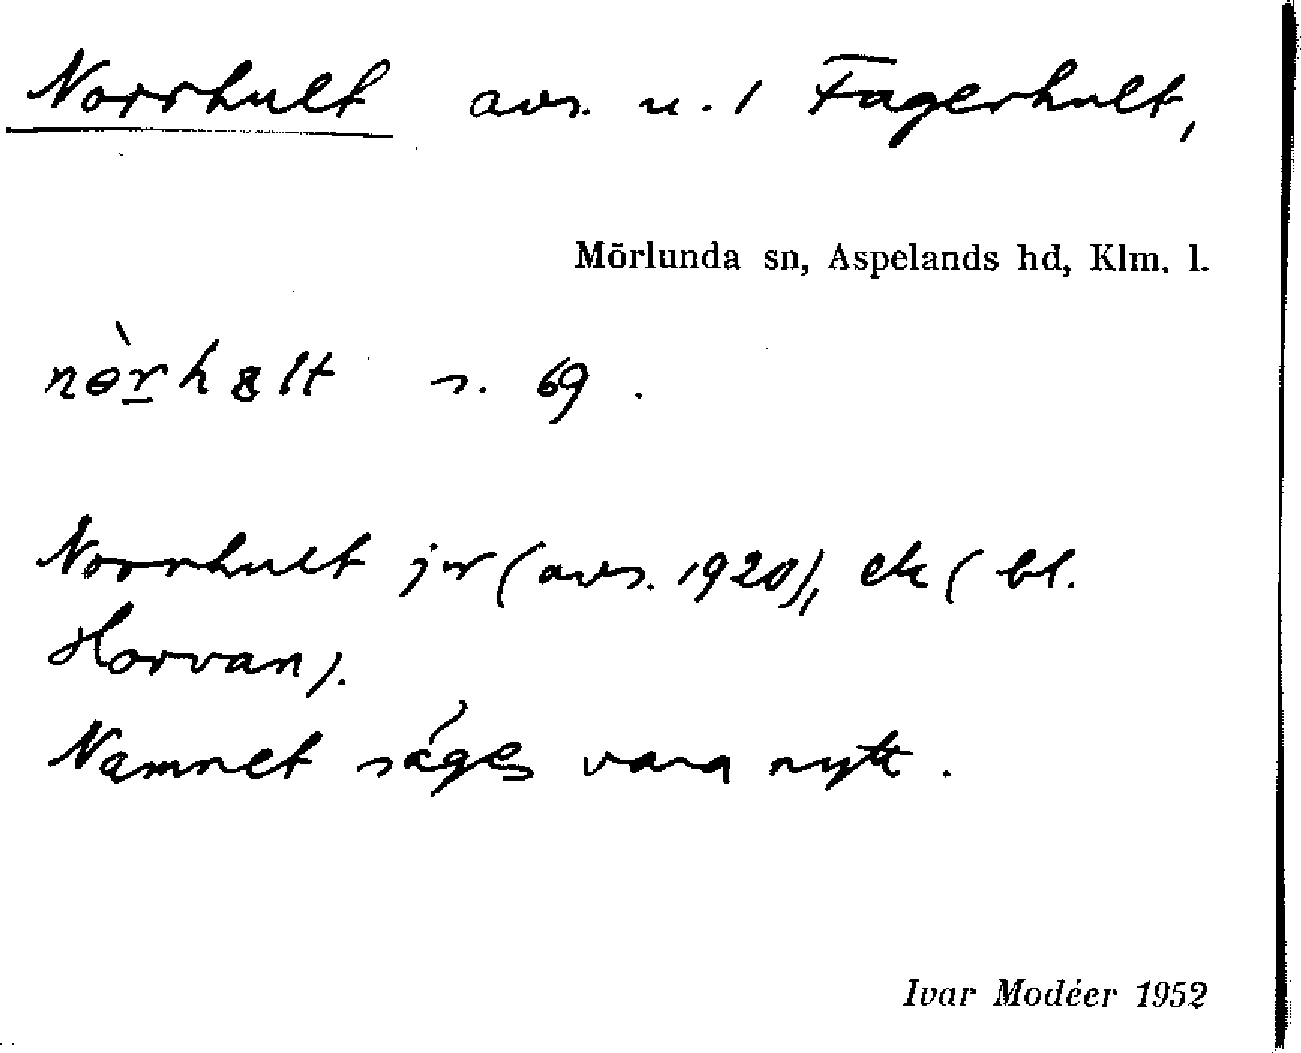 Norrhult avs. u. 1 Fagerhult,
Mörlunda sn, Aspelands hd, Klm. l.
s. 69.
Norrhult jr (avs. 1920), ek (bl.
Horvan).
Namnet säges vara nytt.
Ivar Modéer 1952